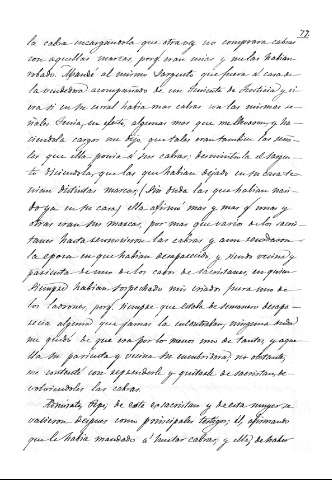 77.
la cabra encargándola que otra vez no comprara cabras
con aquellas marcas, porqe. eran mias y me las habian
robado. Mandé al mismo Sargento que fuera á casa de
la vendedora acompañado de un Teniente de Justicia y vi-
era si en su corral habia mas cabras con las mismas se-
ñales. Tenia, en efecto, algunas mas que me llevaron y ha-
ciendola cargos me dijo que tales eran tambien las seña-
les que ella ponia á sus cabras; desmintióla el Sargen-
to diciendola, que las que habian dejado en su casa te-
nian distintas marcas, (sin duda las que habian naci-
do ya en su casa) ella afirmó mas y mas qe. unas y
otras eran sus marcas, por mas que varios de los sacris-
tanes hasta reconocieron las cabras y aun señalaron
la época en que habian desaparecido, y siendo vecina y
parienta de uno de los cabos de sacristanes, en quien
siempre habian sospechado mis criados fuera uno de
los ladrones, porqe. siempre que estaba de semanero desapa-
recia alguna que jamas la encontraban, ninguna duda
me quedó de que era por lo menos uno de tantos, y aque-
lla su parienta y vecina su encubridora; no obstante,
me contenté con reprenderle y quitarle de sacristan, de-
volviendole las cabras.
Admirate, Pepe; de este ex sacristan y de esta muger se
valieron despues como principales testigos; él, afirmando
que le habia mandado á hurtar cabras, y ella, de haber